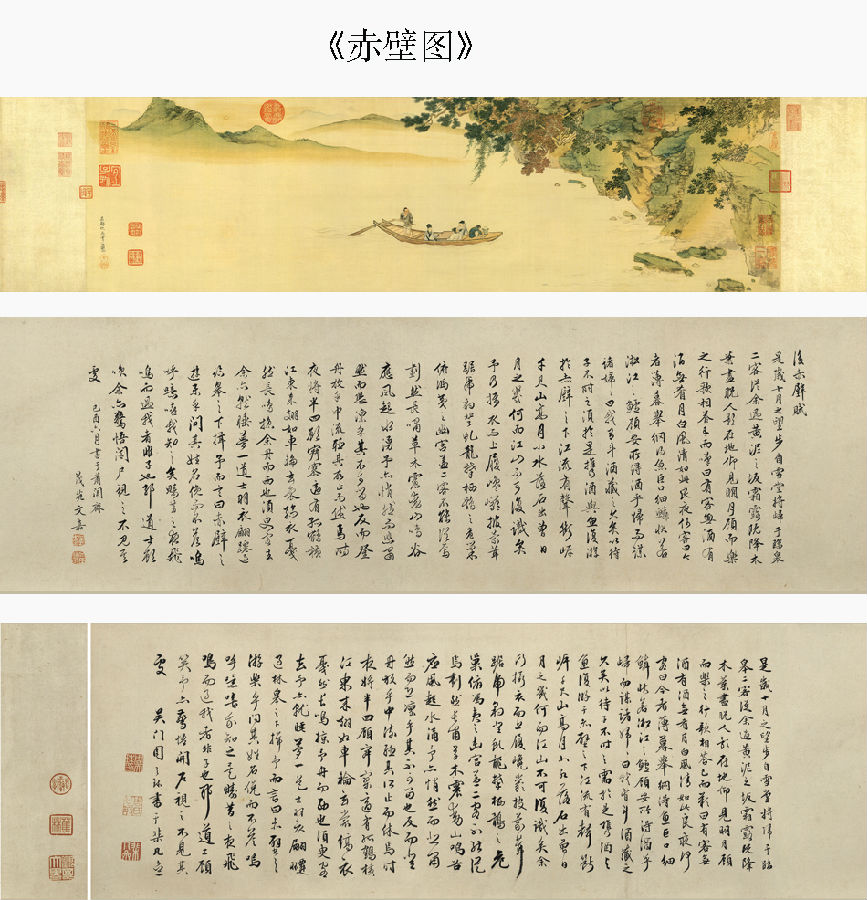 《赤壁图》
後赤壁賦
是歲十月之望步自雪堂將歸于臨皋
二客從余過黃泥之坂霜露既降木
葉盡脫人影在地仰見明月顧而樂
之行歌相答已而嘆曰有客無酒有
酒無肴月白風清如此良夜何客曰今
者薄暮舉網得魚巨口細鱗狀若
淞江之鱸顧安所得酒乎歸而謀
諸婦婦曰我有斗酒藏之久矣以待
子不時之須於是攜酒與魚復游
於赤壁之下江流有聲斷岸
千尺山高月小水落石出曾日
月之幾何而江山不可復識矣
予乃攝衣而上履巉巖披蒙茸
踞虎豹登虬龍攀栖鶻之危巢
俯馮夷之幽宮蓋二客不能從焉
劃然長嘯草木震動山鳴谷
應風起水湧予亦悄然而悲肅
然而恐凜乎其不可留也反而登
舟放乎中流聽其所止而休焉時
夜將半四顧寂寥適有孤鶴橫
江東來翅如車輪玄裳縞衣戛
然長鳴掠余舟而西也須臾客去
余亦就睡夢一道士羽衣翩躚過
臨皋之下揖予而言曰赤壁之
遊樂乎問其姓名俛而不答嗚
呼噫嘻我知之矣疇昔之夜飛
鳴而過我者非子也耶道士顧
笑余亦驚悟開戶視之不見其
處
茂苑文嘉
是歲十月之望步自雪堂將歸于臨
皋二客從余過黃泥之坂霜露既降
木葉盡脫人影在地仰見明月顧
而樂之行歌相答已而歎曰有客無
酒有酒無肴月白風清如此良夜何
客曰今者薄暮舉網得魚巨口細
鱗狀若淞江之鱸顧安所得酒乎
歸而謀諸婦婦曰我有斗酒藏之
久矣以待子不時之需於是攜酒與
魚復游於赤壁之下江流有聲斷
岸千尺山高月小水落石出曾日
月之幾何而江山不可復識矣余
乃攝衣而上履巉巖披蒙茸
踞虎豹登虬龍攀栖鶻之危
巢俯馮夷之幽宮蓋二客不能從
焉劃然長嘯草木震動山鳴谷
應風起水湧予亦悄然而悲肅
然而恐凜乎其不可留也反而登
舟放乎中流聽其所止而休焉時
夜將半四顧寂寥適有孤鶴橫
江東來翅如車輪玄裳縞衣
戛然長鳴掠予舟而西也須臾客
去予亦就睡夢一道士羽衣翩躚
過臨皋之下揖予而言曰赤壁之
游樂乎問其姓名俛而不答嗚
呼噫嘻我知之矣疇昔之夜飛
鳴而過我者非子也耶道士顧
笑予亦驚悟開戶視之不見其
處 吳門周天球書于